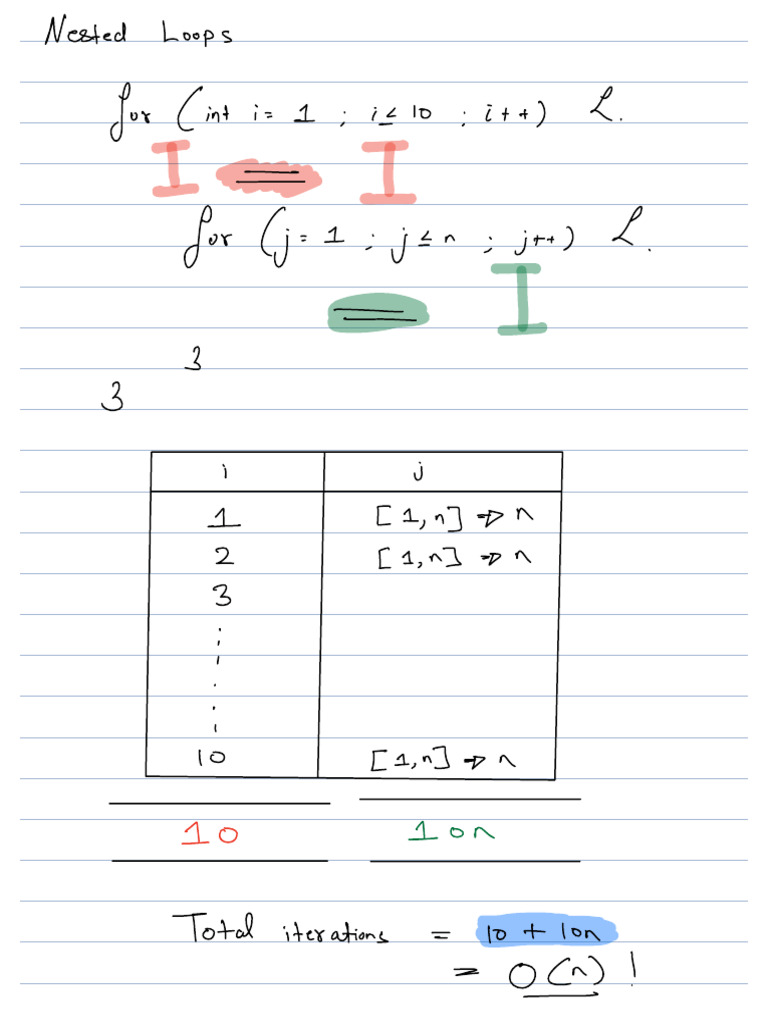 Nested Loops
for (int i = 1 ; i ≤ 10 ; i++) {
for (j = 1 ; j ≤ n ; j++) {
}
}
i j
1 [1,n] → n
2 [1,n] → n
3
:
.
.
10 [1,n] → n
10 10n
Total iterations = 10 + 10n
= O(n) !